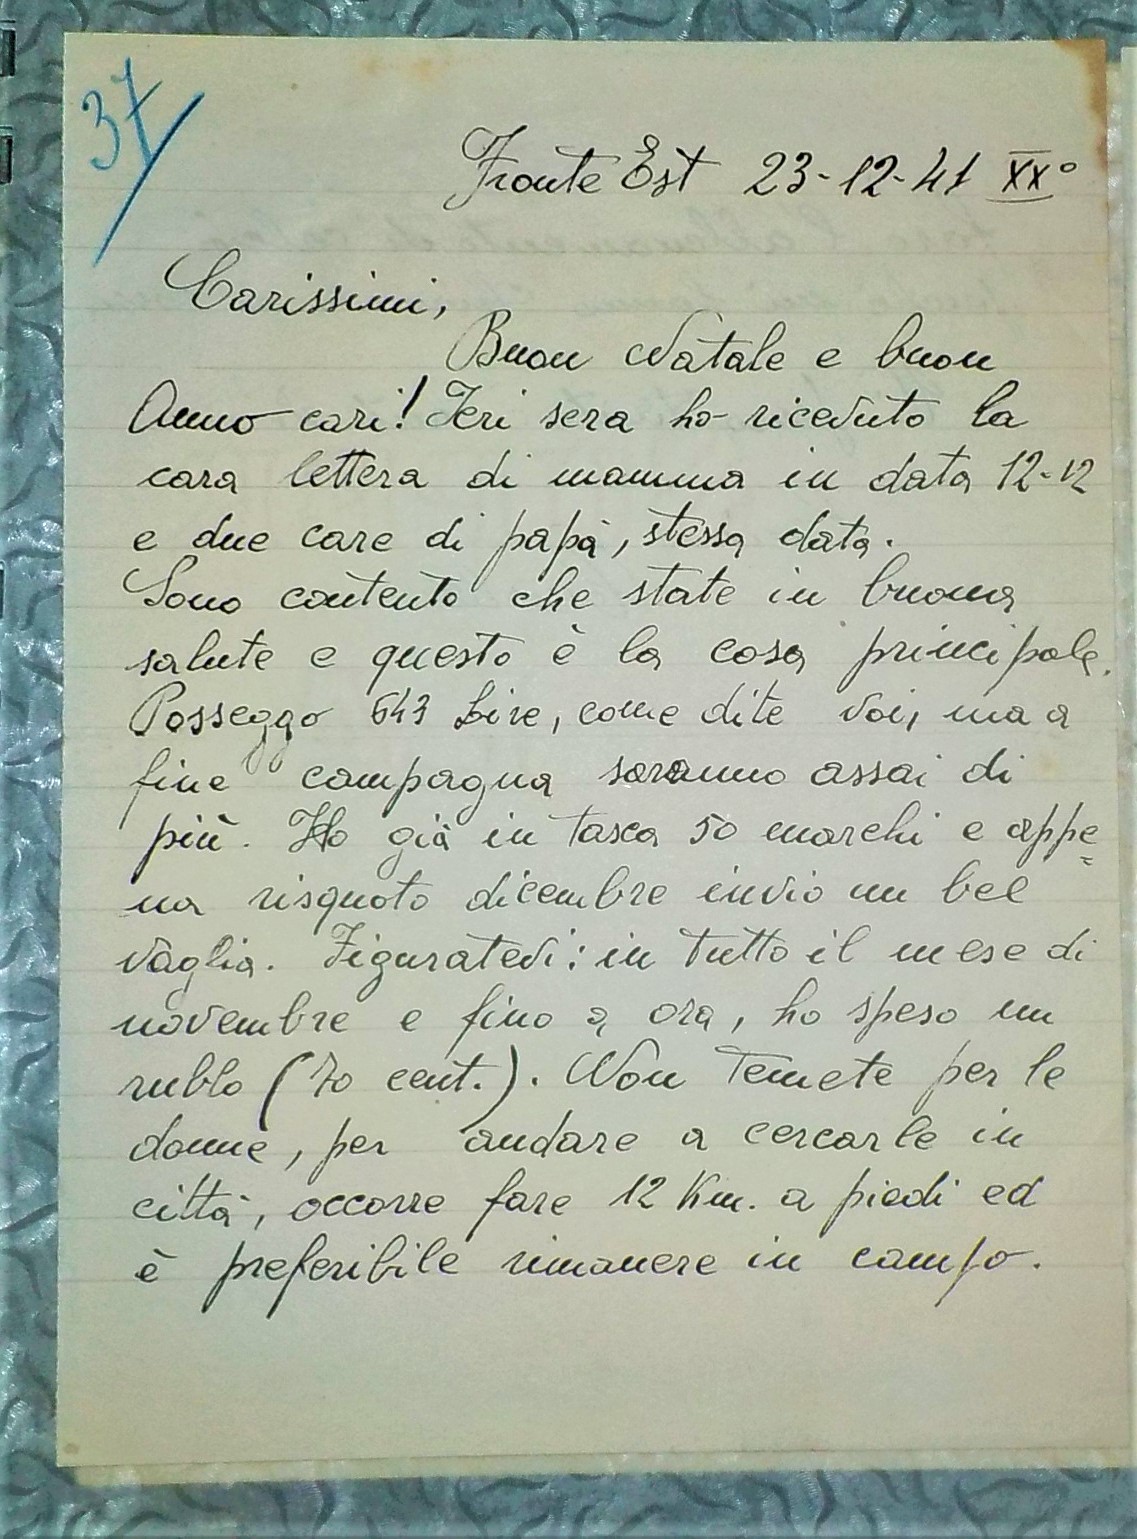 37
Fronte Est 23-12-41 XX°
Carissimi,
Buon Natale e buon
Anno cari! Ieri sera ho ricevuto la
cara lettera di mamma in data 12-12
e due care di papà, stessa data.
Sono contento che state in buona
salute e questo è la cosa principale.
Posseggo 643 Lire, come dite voi, ma a
fine campagna saranno assai di
più. Ho già in tasca 50 marchi e appe=
na risquoto dicembre invio un bel
vaglia. Figuratevi: in tutto il mese di
novembre e fino a ora, ho speso un
rublo (70 cent.). Non temete per le
donne, per andare a cercarle in
città, occorre fare 12 Km. a piedi ed
è preferibile rimanere in campo.